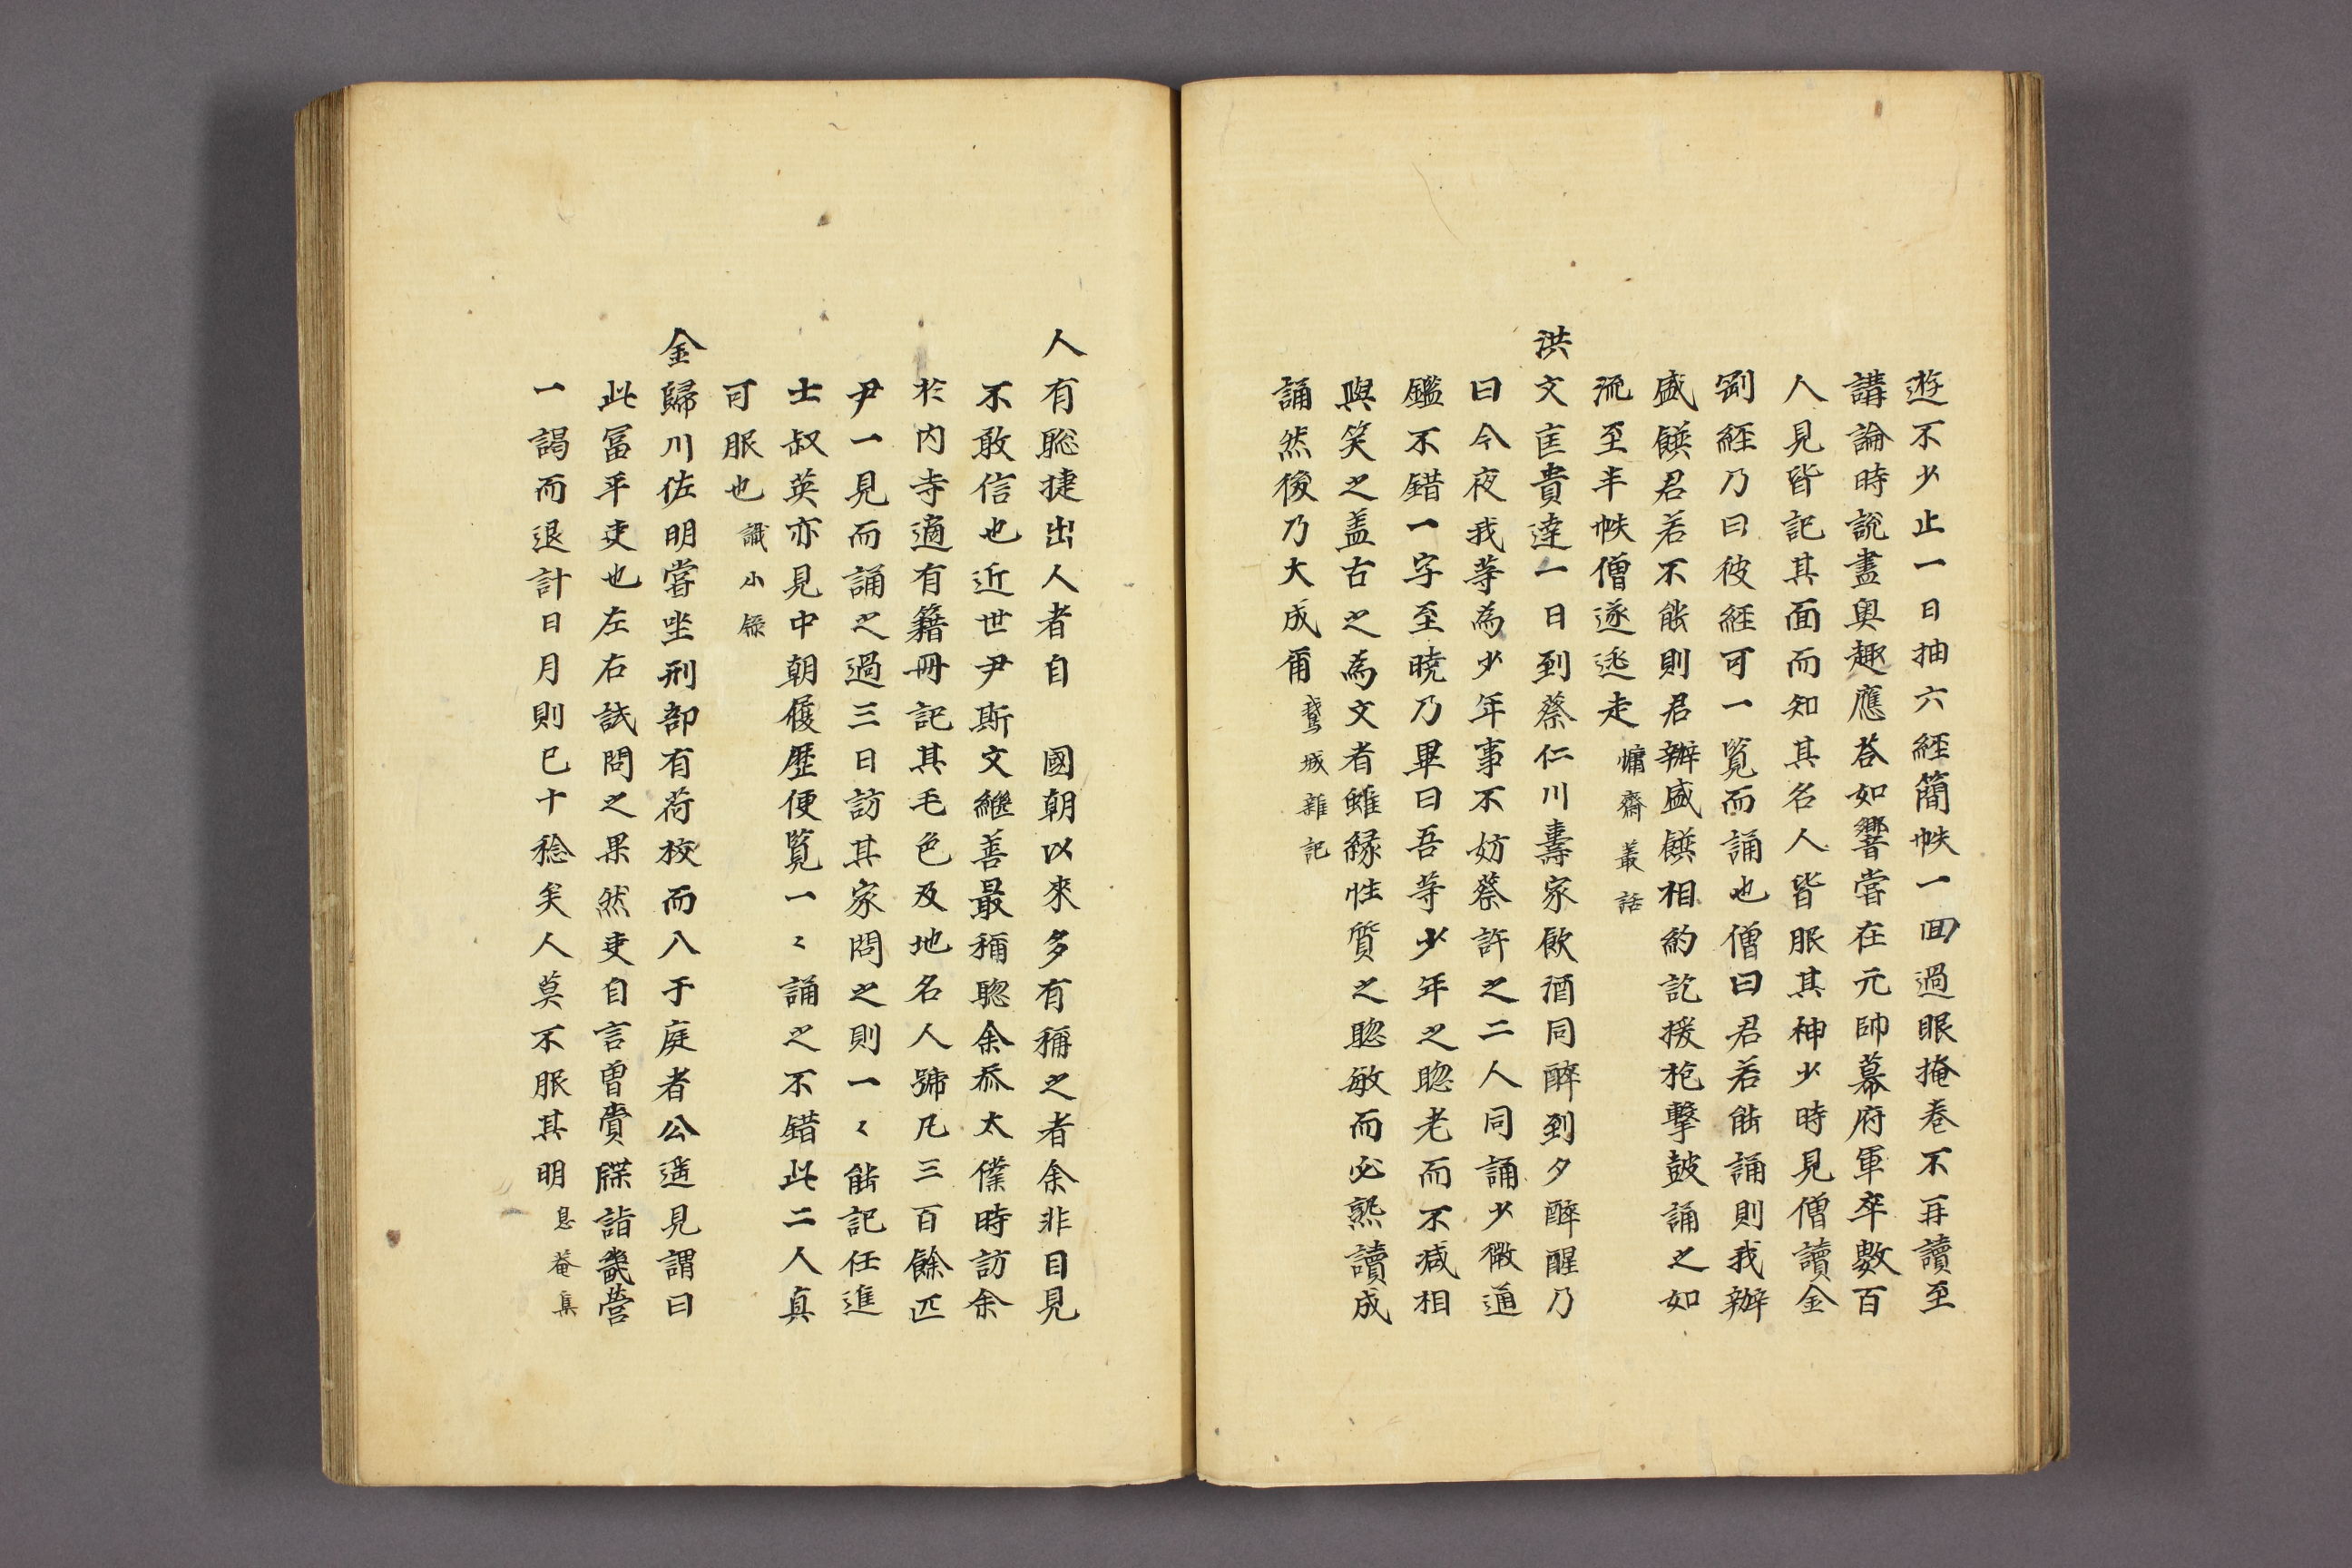 遊不少止一日抽六経簡帙一回過眼掩巻不再讀至
講論時說盡奧趣應荅如響嘗在元帥幕府軍卒數百
人見皆記其面而知其名人皆服其神少時見僧讀金
剛経乃曰彼経可一覧而誦也僧曰君若能誦則我辦
盛饌君若不能則君辦盛饌相約訖援枹擊鼓誦之如
流至半帙僧遂逃走 慵齋叢話
洪文匡貴達一日到蔡仁川壽家飲酒同醉到夕醉醒乃
曰今夜我等為少年事不妨蔡許之二人同誦少微通
鑑不錯一字至曉乃畢曰吾等少年之聦老而不减相
與笑之盖古之為文者雖緣性質之聦敏而必熟讀成
誦然後乃大成爾 鵞城雜記
人有聡捷出人者自 國朝以來多有稱之者余非目見
不敢信也近世尹斯文繼善最稱聦余忝太僕時訪余
於内寺適有籍冊記其毛色及地名人號凡三百餘匹
尹一見而誦之過三日訪其家問之則一〻能記任進
士叔英亦見中朝履歷便覧一〻誦之不錯此二人真
可服也 識小錄
金歸川佐明嘗坐刑部有荷校而入于庭者公遥見謂曰
此冨平吏也左右試問之果然吏自言曽賫牒詣畿營
一謁而退計日月則已十稔矣人莫不服其明 息菴集